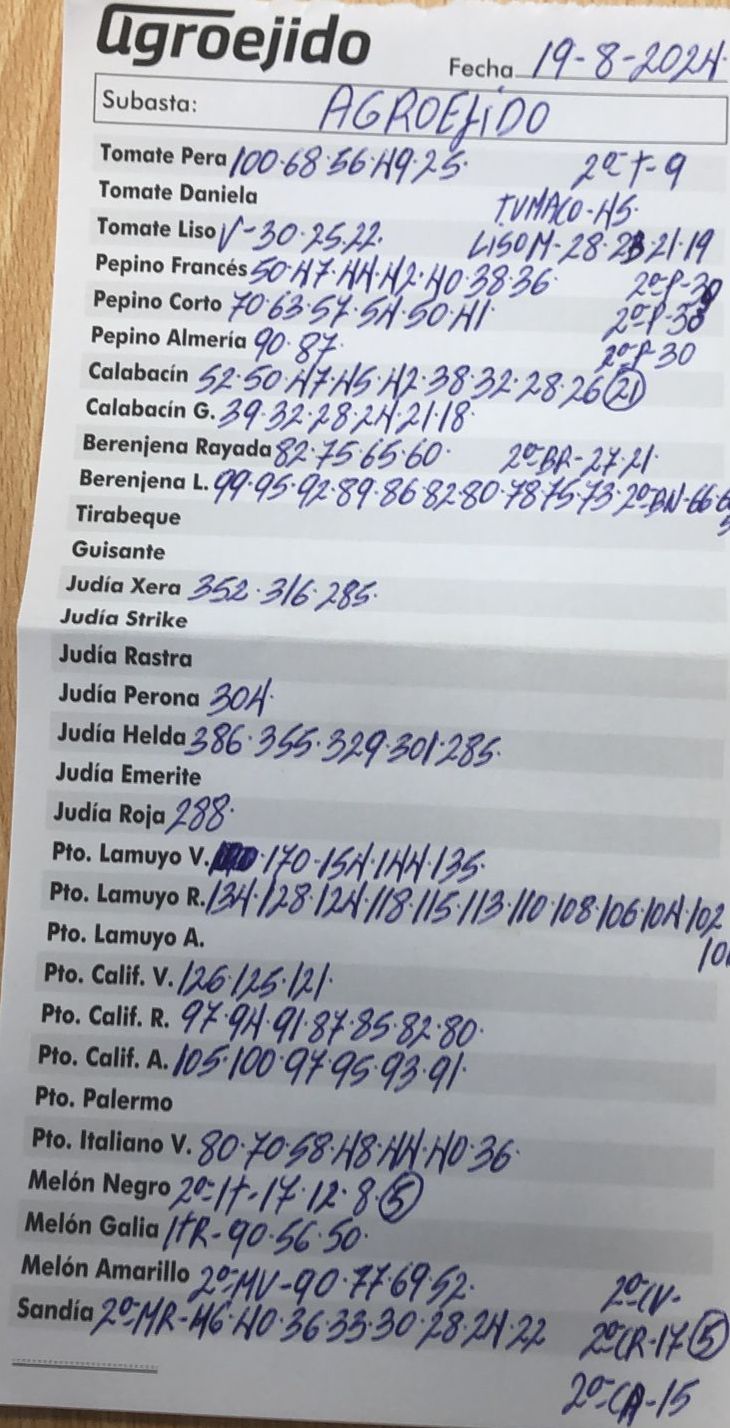 agroejido
Fecha 19-8-2024.
Subasta: AGROEJIDO
Tomate Pera 100·68·56·49·25· 2ª T-9
Tomate Daniela TUMACO-45·
Tomate Liso V-30·25·22· LISO M-28·23·21·19
Pepino Francés 50·47·44·42·40·38·36· 2ª P-30
Pepino Corto 70·63·57·54·50·41· 2ª P-30
Pepino Almería 90·87· 2ª P-30
Calabacín 52·50·47·45·42·38·32·28·26 (21)
Calabacín G. 39·32·28·24·21·18·
Berenjena Rayada 82·75·65·60· 2ª BR-27·21·
Berenjena L. 99·95·92·89·86·82·80·78·75·73·2ª BN-66
Tirabeque
Guisante
Judía Xera 352·316·285·
Judía Strike
Judía Rastra
Judía Perona 304·
Judía Helda 386·355·329·301·285·
Judía Emerite
Judía Roja 288·
Pto. Lamuyo V. ·170·154·144·135·
Pto. Lamuyo R. 134·128·124·118·115·113·110·108·106·104·102
Pto. Lamuyo A.
Pto. Calif. V. 126·125·121·
Pto. Calif. R. 97·94·91·87·85·82·80·
Pto. Calif. A. 105·100·97·95·93·91·
Pto. Palermo
Pto. Italiano V. 80·70·58·48·44·40·36·
Melón Negro 2ª It-17·12·8·(5)
Melón Galia ItR-90·56·50·
Melón Amarillo 2ª MV-90·77·69·52· 2ª CV-
Sandía 2ª MR-46·40·36·33·30·28·24·22 2ª CR-17 (5)
2ª CA-15